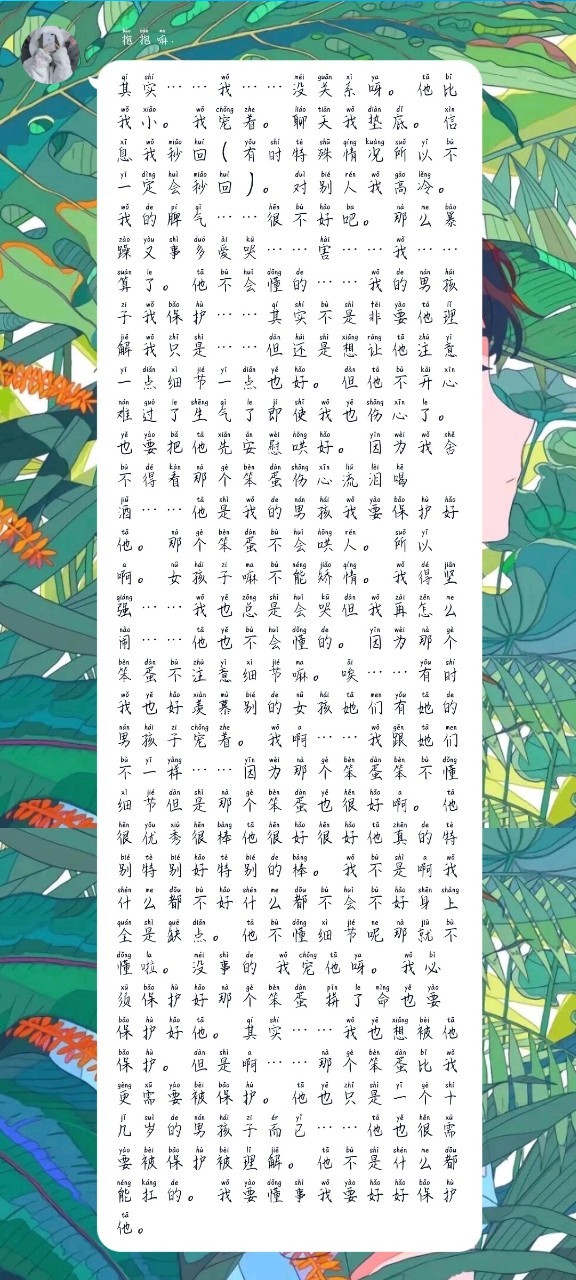 抱抱嘛.
其实……我……没关系呀。他比
我小。我宠着。聊天我垫底。信
息我秒回(有时特殊情况所以不
一定会秒回)。对别人我高冷。
我的脾气……很不好吧。那么暴
躁又事多爱哭……害……我……
算了。他不会懂的……我的男孩
子我保护……其实不是非要他理
解我只是……但还是想让他注意
一点细节一点也好。但他不开心
难过了生气了即使我也伤心了。
也要把他先安慰哄好。因为我舍
不得看那个笨蛋伤心流泪喝
酒……他是我的男孩我要保护好
他。那个笨蛋不会哄人。所以
啊。女孩子嘛不能矫情。我得坚
强……我也总是会哭但我再怎么
闹……他也不会懂的。因为那个
笨蛋不注意细节嘛。唉……有时
我也好羡慕别的女孩她们有她的
男孩子宠着。我啊……我跟她们
不一样……因为那个笨蛋笨不懂
细节但是那个笨蛋也很好啊。他
很优秀很棒他很好很好他真的特
别特别好特别的棒。我不是啊我
什么都不好什么都不会不好身上
全是缺点。他不懂细节呢那就不
懂啦。没事的 我宠他呀。我必
须保护好那个笨蛋拼了命也要
保护好他。其实……我也想被他
保护。但是啊……那个笨蛋比我
更需要被保护。他也只是一个十
几岁的男孩子而已……他也很需
要被保护被理解。他不是什么都
能扛的。我要懂事我要好好保护
他。